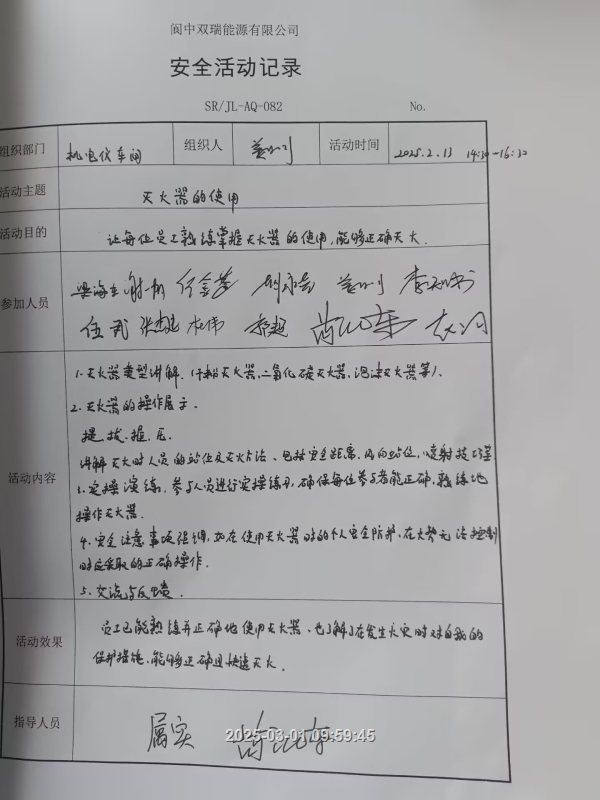 阆中双瑞能源有限公司
安全活动记录
SR/JL-AQ-082 No.
组织部门 机电仪车间 组织人 活动时间 2025.2.13 14:30-16:30
活动主题 灭火器的使用
活动目的 让每位员工熟练掌握灭火器的使用,能够正确灭火.
参加人员
伍武 张杰 杜伟
活动内容
1.灭火器类型讲解.(干粉灭火器,二氧化碳灭火器,泡沫灭火器等).
2.灭火器的操作展示.
提.拔.握.压.
讲解灭火时人员的站位及灭火方法、包括安全距离、风向站位,喷射技巧等
3.实操演练.参与人员进行实操练习,确保每位参与者能正确、熟练地
操作灭火器.
4.安全注意事项强调,如在使用灭火器时的个人安全防护,在火势无法控制
时应采取的正确操作.
5.交流与反馈.
活动效果 员工已能熟练并正确地使用灭火器、也了解了在发生火灾时对自我的
保护措施,能够正确且快速灭火.
指导人员 属实
2025-03-01 09:59:45